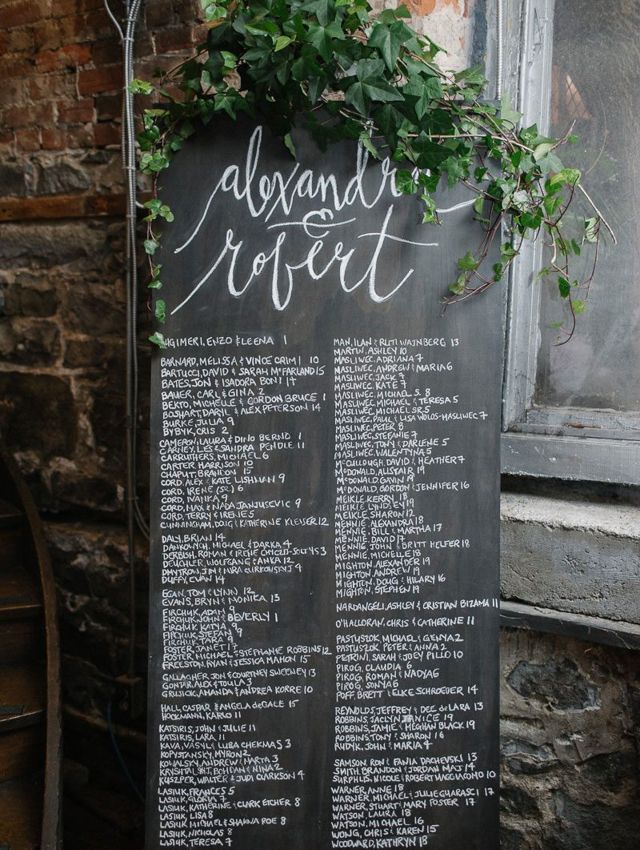 alexandra
&
robert
AGIMERI, ENZO & LEENA 1
BARNARD, MELISSA & VINCE CRIMI 10
BARTUCCI, DAVID & SARAH McFARLAND 15
BATES, JON & ISADORA BONI 17
BAUER, CARL & GINA 2
BEXTO, MICHELLE & GORDON BRUCE 1
BOSHART, DARYL & ALEX PETERSON 14
BURKE, JULIA 9
BYBYK, CRIS 2
CAMERON, LAURA & DINO BERNO 1
CARNEY, LES & SANDRA PENDLE 11
CARRUTHERS, MICHAEL 6
CARTER HARRISON 10
CHAPUT, BRANDON 15
CORD, ALEX & KATE LISHMAN 9
CORD, IRENE (SR.) 6
CORD, MARIKA 9
CORD, MAX & NADA JANJUSEVIC 9
CORD, TERRY & IRENE 5
CUNNINGHAM, DOUG & KATHERINE KLEISER 12
DALY, BRIAN 14
DANKOVICH, MICHAEL & DARKA 4
DERBISH, ROMAN & IRENE 3
DEUCHLER, WOLFGANG & ANKA 12
DMYTRON, JIM & NRA 4
DUFFY, EVAN 14
EGAN, TOM & LYNN 12
EVANS, BRYN & MONICA 13
FIRCHUK, ADAM 9
FIRCHUK, JOHN & BEVERLY 1
FIRCHUK, KATYA 9
FIRCHUK, STEFAN 9
FIRCHUK, TARA 9
FOSTER, JANET 17
FOSTER, MICHAEL & STEPHANIE ROBBINS 12
FREESTON, RYAN & JESSICA MAHON 15
GALLAGHER, JON & COURTNEY SWEENEY 13
GONTAR, ALEX & TOULA 3
GRUJICK, AMANDA & ANDREA KORRE 10
HALL, CASPAR & ANGELA DEGALE 15
HOCKMANN, KARLO 11
KATSIRIS, JOHN & JULIE 11
KATSIRIS, LARA 11
KAVA, VASYL & LUBA CHEKMAS 3
KOPYSTANSKY, MYRON 2
KOWALSKY, ANDREW & MARTA 3
KRYSTALSKI, BOHDAN & NINA 2
KUSZPER, WALTER & JUDI CLARKSON 4
LASIUK, FRANCES 5
LASIUK, GLORIA 7
LASIUK, KATHERINE & CLARK EICHER 8
LASIUK, LISA 8
LASIUK, MICHAEL & SHAUNA POE 8
LASIUK, NICHOLAS 8
LASIUK, TERESA 7
MAN, ILAN & RUTI WAJNBERG 13
MARTIN, ASHLEY 10
MASLIWEC, ADRIANA 7
MASLIWEC, ANDREW & MARIA 6
MASLIWEC, JACK 7
MASLIWEC, KATE 7
MASLIWEC, MICHAEL S. 8
MASLIWEC, MICHAEL & TERESA 5
MASLIWEC, MICHAEL SR 5
MASLIWEC, PAUL & LISA WOLOS-MASLIWEC 7
MASLIWEC, PETER 8
MASLIWEC, STEFANIE 7
MASLIWEC, TONY & DARLENE 5
MASLIWEC, VALENTYNA 5
McCULLOUGH, DAVID & HEATHER 7
McDONALD, ALISTAIR 19
McDONALD, GAVIN 19
McDONALD, GORDON & JENNIFER 16
MEIKLE, KERRY 18
MEIKLE, LYNDLEY 19
MEIKLE, SHARON 12
MENNIE, ALEXANDRA 18
MENNIE, BILL & MARTHA 17
MENNIE, DAVID 17
MENNIE, JOHN & BRITT HELFER 18
MENNIE, MICHELLE 18
MIGHTON, ALEXANDER 19
MIGHTON, ANDREW 19
MIGHTON, DOUG & HILARY 16
MIGHTON, STEPHEN 19
NARDANGELI, ASHLEY & CRISTIAN BIZAMA 11
O'HALLORAN, CHRIS & CATHERINE 11
PASTUSZOK MICHAEL & GENYA 2
PASTUSZOK PETER & ANNA 2
PETRINI, SARAH & JOEY PILLO 10
PIROG, CLAUDIA 6
PIROG, ROMAN & NADYA 6
PIROG, SONYA 6
POFF BRETT & ELKE SCHROEDER 14
REYNOLDS, JEFFREY & DEE DE LARA 13
ROBBINS, JACLYN JANICE 19
ROBBINS, JAMIE & MEGHAN BLACK 19
ROBBINS, TONY & SHARON 16
RUDYK, JOHN & MARIA 4
SAMSON, RON & FANIA DACHEVSKI 13
SMITH, BRANDON & JORDAN MAJ 14
SURPHLIS, NICOLE & ROBERT 10
WARNER, ANNE 18
WARNER, MICHAEL & JULIE GUARASCI 17
WARNER, STUART & MARY FOSTER 17
WATSON, LAURA 18
WATSON, MICHAEL 16
WONG, CHRIS & KAREN 15
WOODWARD, KATHRYN 18